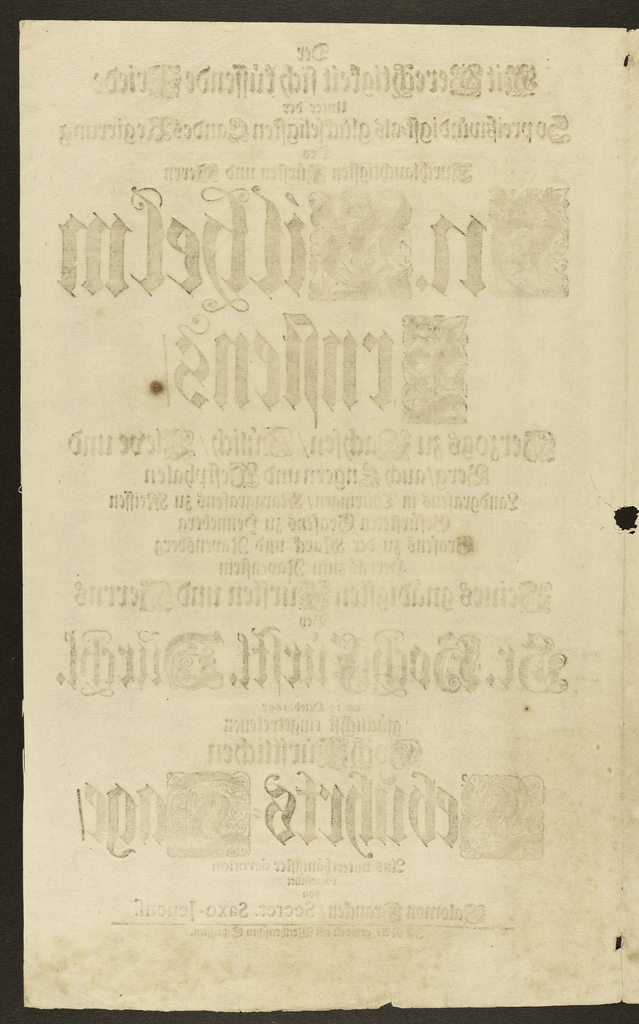 Der
Mit Gerechtigkeit sich küssende Friede
Unter der
So preißwürdigst als glückseligsten Landes Regierung
Des
Durchlauchtigsten Fürsten und Herrn
Hn. Wilhelm
Ernstens/
Hertzogs zu Sachsen/ Jülich/ Cleve und
Berg/ auch Engern und Westphalen
Landgrafens in Thüringen/ Marggrafens zu Meissen
Gefürsteten Grafens zu Henneberg
Grafens zu der Marck und Ravensberg
Herrns zum Ravenstein
Seines gnädigsten Fürsten und Herrns
Bey
Sr. Hoch-Fürstl. Dürchl.
am 19. Octob.
glücklichst eingetretenen
Hoch-Fürstlichen
Gebuhrts-Tage/
Aus unterthänigster devotion
von
Salomon Francken/ Secret. Saxo-Jenens.